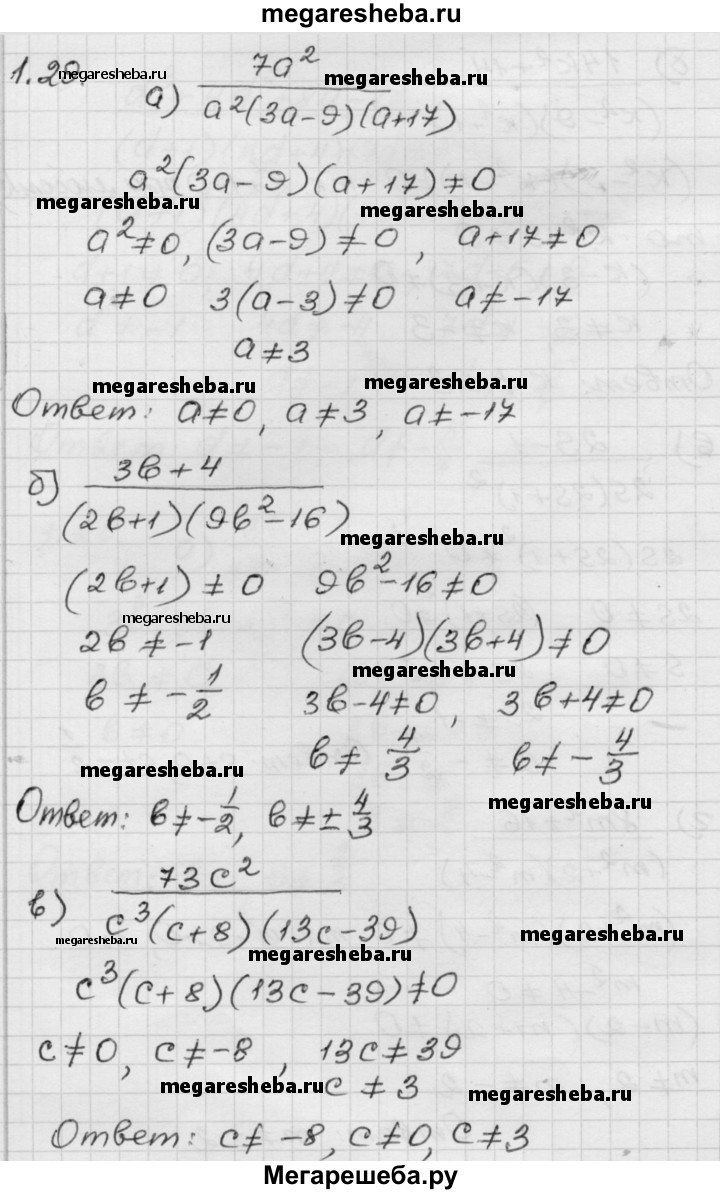 megaresheba.ru
1.20. megaresheba.ru
а) 7a²/(a²(3a-9)(a+17)) megaresheba.ru
a²(3a-9)(a+17)≠0
megaresheba.ru megaresheba.ru
a²≠0, (3a-9)≠0, a+17≠0
a≠0 3(a-3)≠0 a≠-17
a≠3
megaresheba.ru megaresheba.ru
Ответ: a≠0, a≠3, a≠-17
б) (3b+4)/((2b+1)(9b²-16))
megaresheba.ru
(2b+1)≠0 9b²-16≠0
megaresheba.ru
2b≠-1 (3b-4)(3b+4)≠0
megaresheba.ru
b≠-1/2 3b-4≠0, 3b+4≠0
b≠4/3 b≠-4/3
megaresheba.ru
megaresheba.ru
Ответ: b≠-1/2, b≠±4/3
в) 73c²/(c³(c+8)(13c-39))
megaresheba.ru megaresheba.ru megaresheba.ru
c³(c+8)(13c-39)≠0
c≠0, c≠-8, 13c≠39
megaresheba.ru c≠3 megaresheba.ru
Ответ: c≠-8, c≠0, c≠3
Мегарешеба.ру